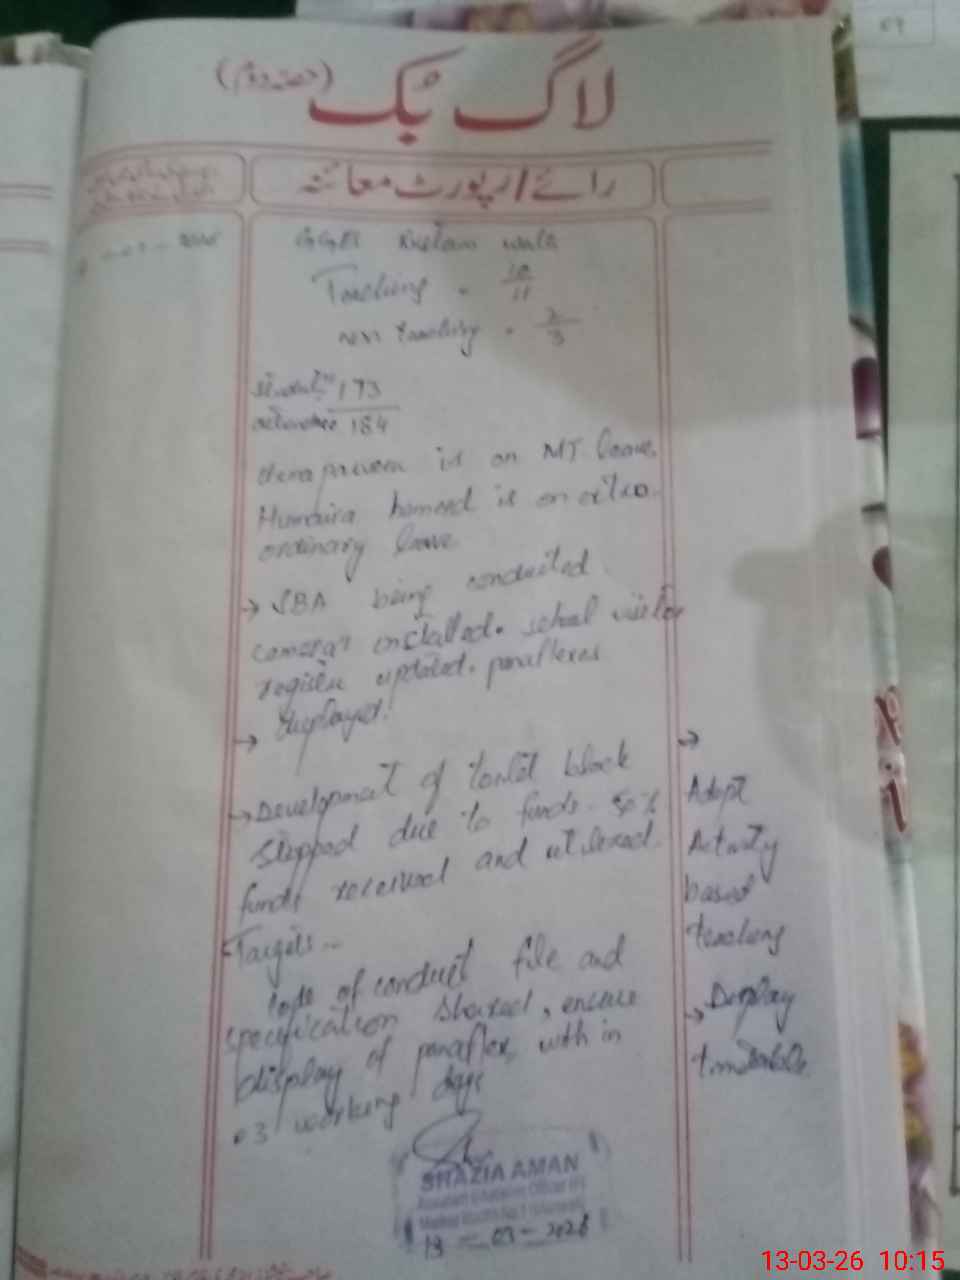 لاگ بک (حصہ دوم)
رائے / رپورٹ معائنہ
Teaching = 10/11
non teaching = 2/3
173
184
is on MT leave.
Humaira hameed is on extra
ordinary leave
→ SBA being conducted
camera's installed. school visitor
register updated. panaflexes
→ displayed.
→ Development of toilet block
stopped due to funds. 50%
funds received and utilized.
Targets --
Code of conduct file and
specification shared, ensure
display of panaflex, with in
03 working days
→
Adopt
Activity
based
teaching
→ Display
timetable.
SHAZIA AMAN
Assistant Education Officer
13-03-2026
13-03-26 10:15